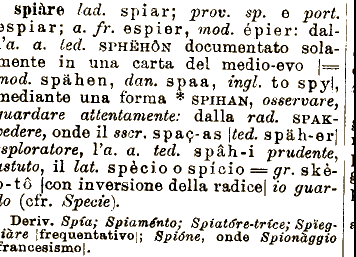 spiàre lad. spiar; prov. sp. e port.
espiar; a. fr. espier, mod. épier: dal-
l'a. a. ted. SPHËHÔN documentato sola-
mente in una carta del medio-evo |=
mod. spähen, dan. spaa, ingl. to spy|,
mediante una forma * SPIHAN, osservare,
guardare attentamente: dalla rad. SPAK-
vedere, onde il sscr. spaç-as |ted. späh-er|
esploratore, l'a. a. ted. spâh-i prudente,
astuto, il lat. spècio o spício = gr. skè-
p-tô |con inversione della radice| io guar-
do (cfr. Specie).
Deriv. Spía; Spiaménto; Spiatóre-tríce; Spïeg-
giàre |frequentativo|; Spióne, onde Spionàggio
francesismo|.